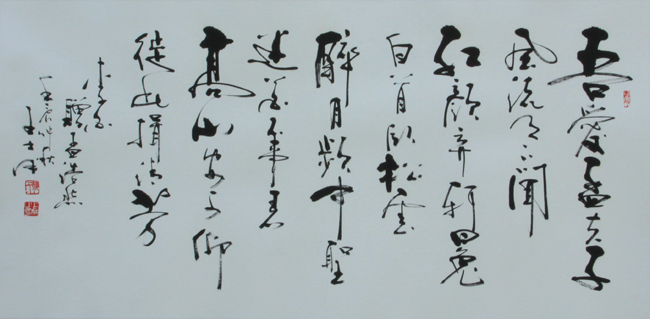 吾愛孟夫子
风流天下聞
红顔弃轩冕
白首卧松雲
醉月頻中聖
迷花不事君
高山安可仰
徒此揖清芬
李白
贈孟浩然